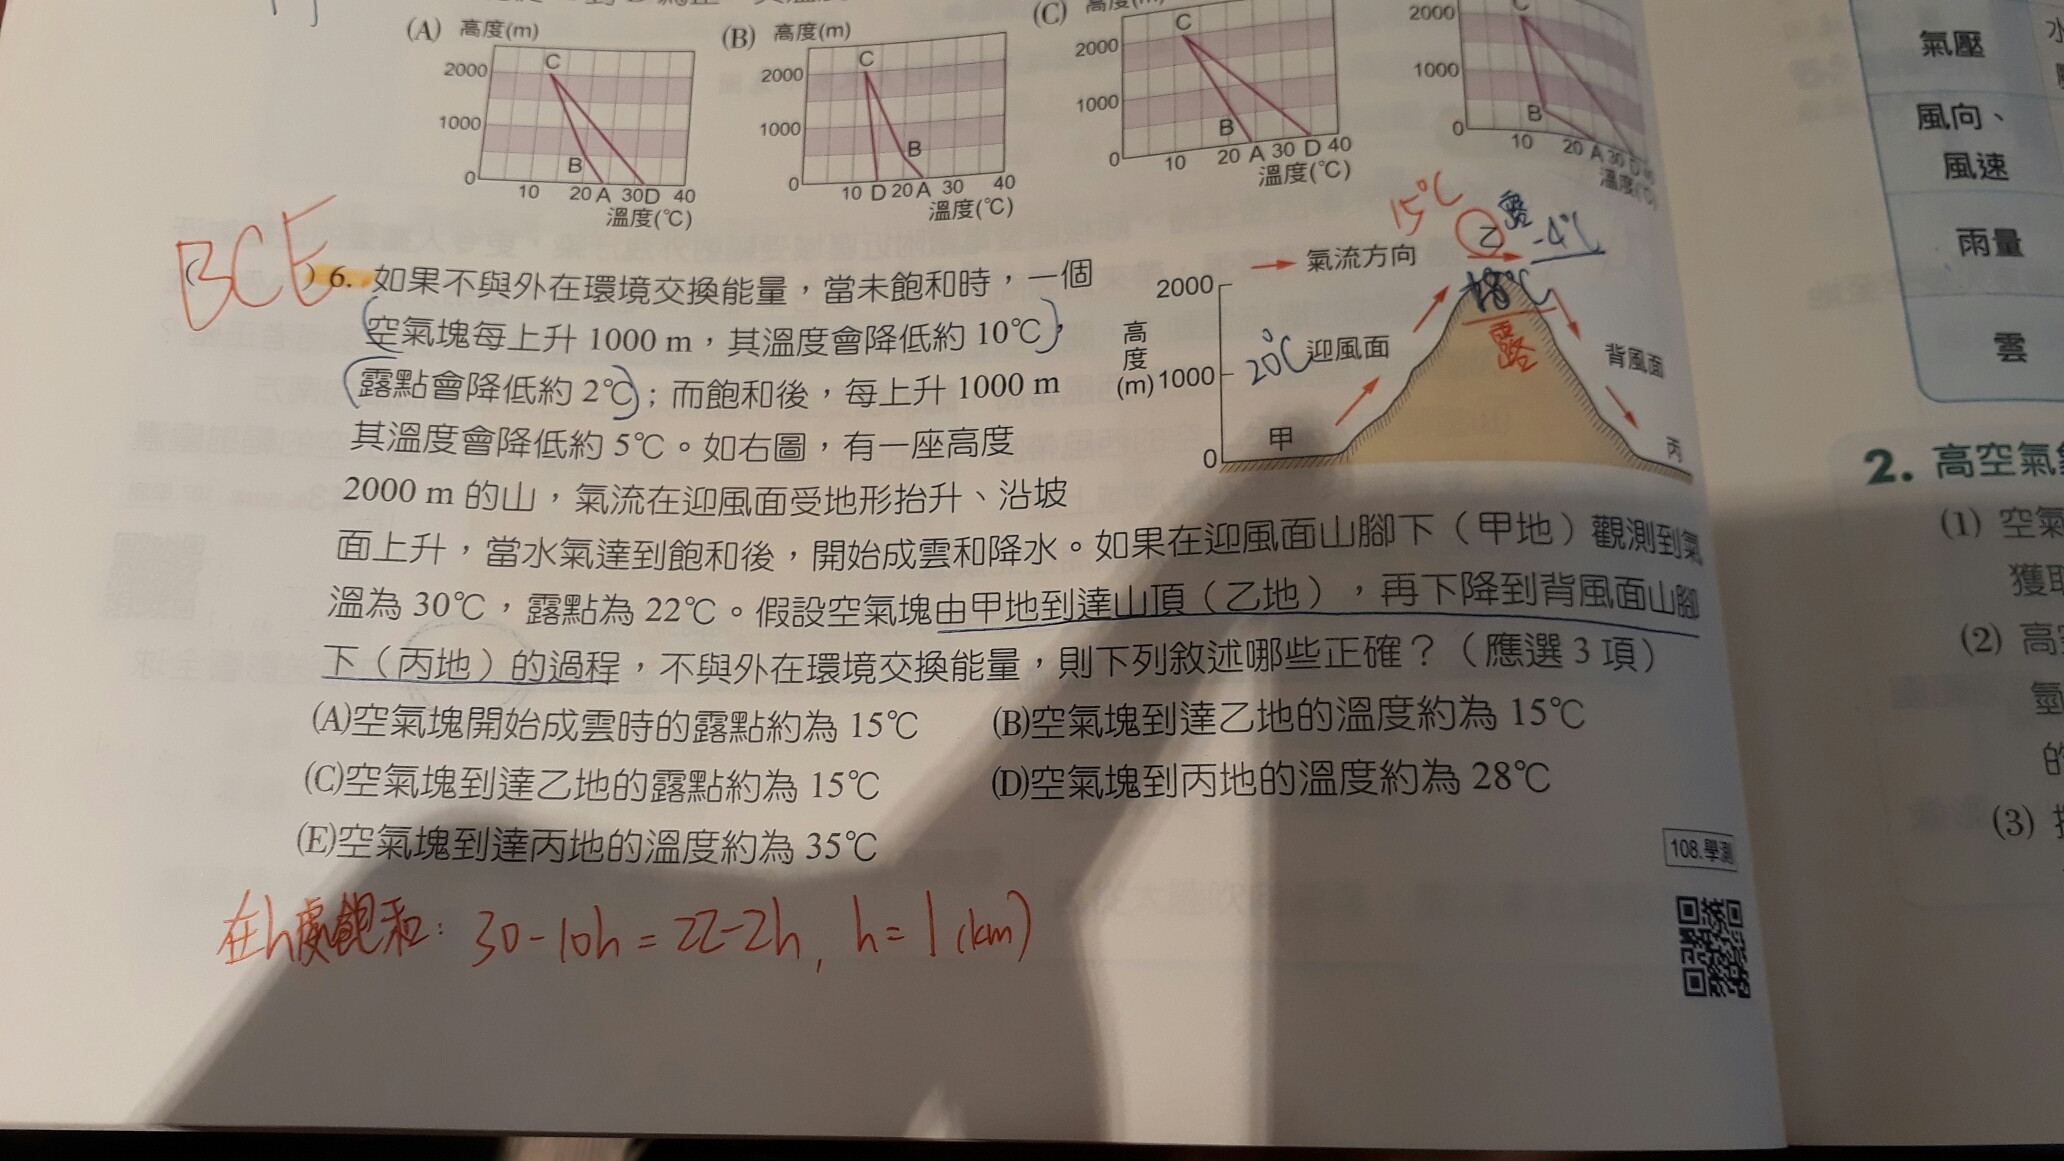 (A) 高度(m)
2000
1000
0
C
B
10 20 A 30D 40
溫度(℃)
(B) 高度(m)
2000
1000
0
C
B
10 D 20A 30 40
溫度(℃)
(C) 高度(m)
2000
1000
0
C
B
10 20 A 30 D 40
溫度(℃)
2000
1000
0
C
B
10 20 A 30 D
溫度(℃)
BCE
( ) 6. 如果不與外在環境交換能量，當未飽和時，一個
空氣塊每上升 1000 m，其溫度會降低約 10℃，
露點會降低約 2℃；而飽和後，每上升 1000 m
其溫度會降低約 5℃。如右圖，有一座高度
2000 m 的山，氣流在迎風面受地形抬升、沿坡
面上升，當水氣達到飽和後，開始成雲和降水。如果在迎風面山腳下（甲地）觀測到氣
溫為 30℃，露點為 22℃。假設空氣塊由甲地到達山頂（乙地），再下降到背風面山腳
下（丙地）的過程，不與外在環境交換能量，則下列敘述哪些正確？（應選 3 項）
15℃
露
乙
-4℃
氣流方向
2000
18℃
露
高度(m)
20℃
迎風面
背風面
1000
甲
丙
0
(A)空氣塊開始成雲時的露點約為 15℃
(B)空氣塊到達乙地的溫度約為 15℃
(C)空氣塊到達乙地的露點約為 15℃
(D)空氣塊到丙地的溫度約為 28℃
(E)空氣塊到達丙地的溫度約為 35℃
108.學測
在h處飽和: 30-10h=22-2h, h=1(km)
氣壓
水
風向、
風速
雨量
雲
2. 高空氣
(1) 空氣
獲取
(2) 高
的
(3)